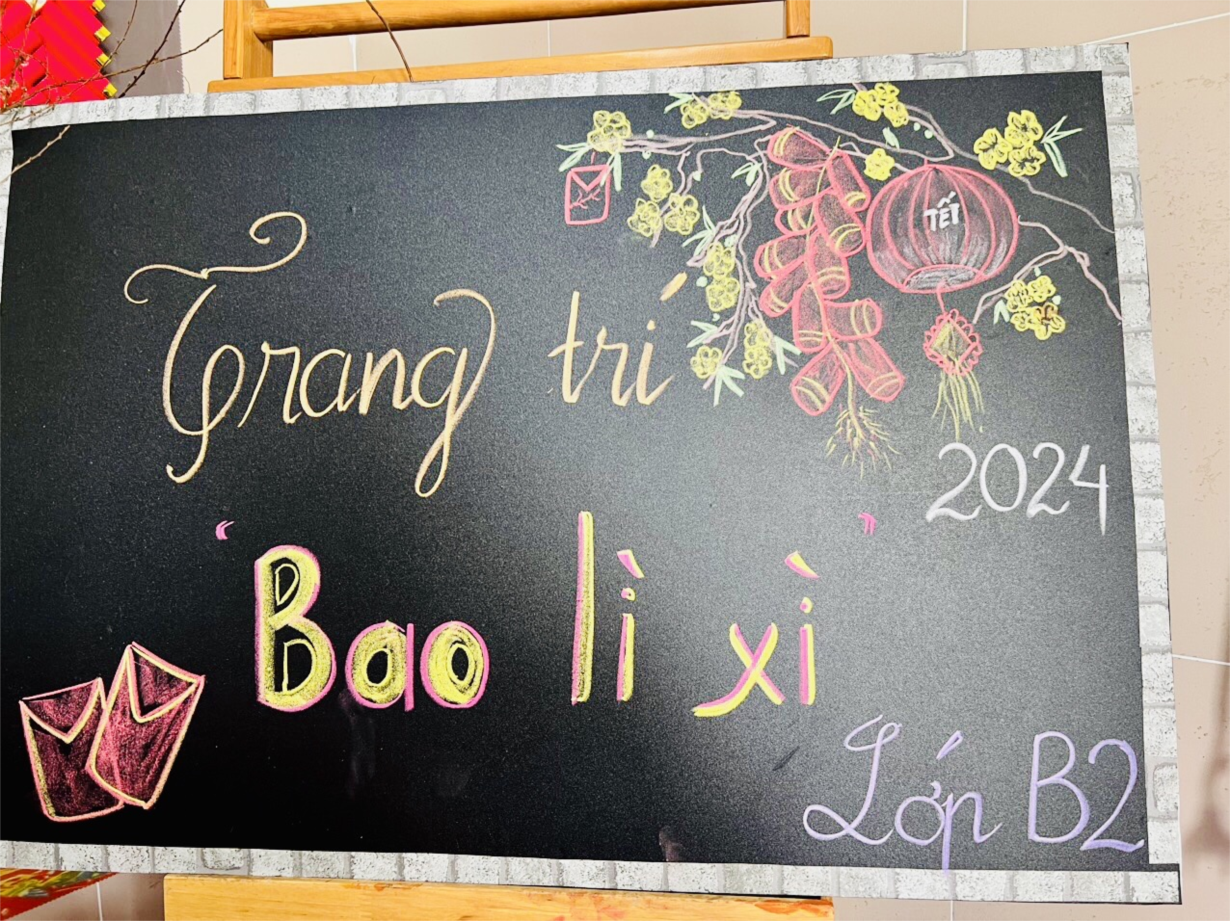 TẾT
Trang trí
2024
“Bao lì xì”
Lớp B2